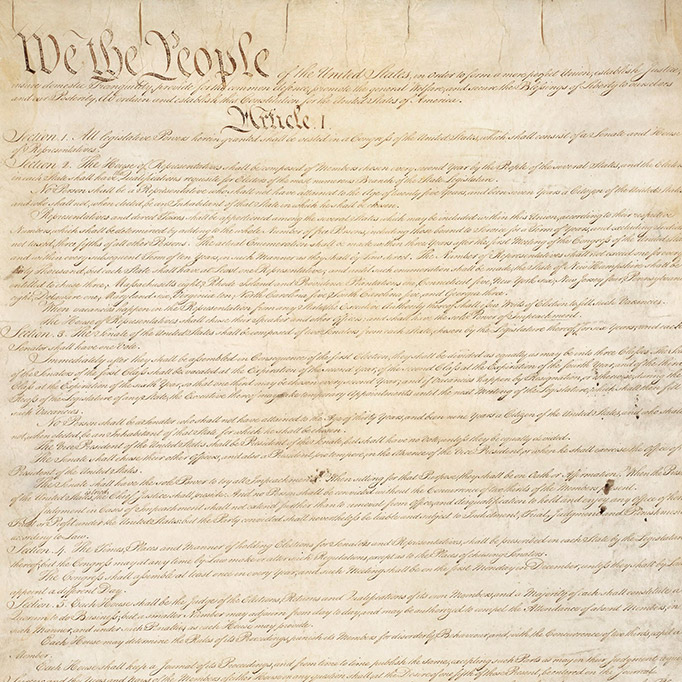 We the People of the United States, in Order to form a more perfect Union, establish Justice,
insure domestic Tranquility, provide for the common defence, promote the general Welfare, and secure the Blessings of Liberty to ourselves
and our Posterity, do ordain and establish this Constitution for the United States of America.
Article. I.
Section. 1. All legislative Powers herein granted shall be vested in a Congress of the United States, which shall consist of a Senate and House
of Representatives.
Section. 2. The House of Representatives shall be composed of Members chosen every second Year by the People of the several States, and the Electors
in each State shall have Qualifications requisite for Electors of the most numerous Branch of the State Legislature.
No Person shall be a Representative who shall not have attained to the Age of twenty five Years, and been seven Years a Citizen of the United States,
and who shall not, when elected, be an Inhabitant of that State in which he shall be chosen.
Representatives and direct Taxes shall be apportioned among the several States which may be included within this Union, according to their respective
Numbers, which shall be determined by adding to the whole Number of free Persons, including those bound to Service for a Term of Years, and excluding Indians
not taxed, three fifths of all other Persons. The actual Enumeration shall be made within three Years after the first Meeting of the Congress of the United States,
and within every subsequent Term of ten Years, in such Manner as they shall by Law direct. The Number of Representatives shall not exceed one for every
thirty Thousand, but each State shall have at Least one Representative; and until such enumeration shall be made, the State of New Hampshire shall be
entitled to chuse three, Massachusetts eight, Rhode Island and Providence Plantations one, Connecticut five, New York six, New Jersey four, Pennsylvania
eight, Delaware one, Maryland six, Virginia ten, North Carolina five, South Carolina five, and Georgia three.
When vacancies happen in the Representation from any State, the Executive Authority thereof shall issue Writs of Election to fill such Vacancies.
The House of Representatives shall chuse their Speaker and other Officers; and shall have the sole Power of Impeachment.
Section. 3. The Senate of the United States shall be composed of two Senators from each State, chosen by the Legislature thereof, for six Years; and each
Senator shall have one Vote.
Immediately after they shall be assembled in Consequence of the first Election, they shall be divided as equally as may be into three Classes. The Seats
of the Senators of the first Class shall be vacated at the Expiration of the second Year, of the second Class at the Expiration of the fourth Year, and of the third
Class at the Expiration of the sixth Year, so that one third may be chosen every second Year; and if Vacancies happen by Resignation, or otherwise, during the
Recess of the Legislature of any State, the Executive thereof may make temporary Appointments until the next Meeting of the Legislature, which shall then fill
such Vacancies.
No Person shall be a Senator who shall not have attained to the Age of thirty Years, and been nine Years a Citizen of the United States, and who shall
not, when elected, be an Inhabitant of that State for which he shall be chosen.
The Vice President of the United States shall be President of the Senate, but shall have no Vote, unless they be equally divided.
The Senate shall chuse their other Officers, and also a President pro tempore, in the Absence of the Vice President, or when he shall exercise the Office of
President of the United States.
The Senate shall have the sole Power to try all Impeachments. When sitting for that Purpose, they shall be on Oath or Affirmation. When the President
of the United States is tried, the Chief Justice shall preside: And no Person shall be convicted without the Concurrence of two thirds of the Members present.
Judgment in Cases of Impeachment shall not extend further than to removal from Office, and disqualification to hold and enjoy any Office of honor,
Trust or Profit under the United States: but the Party convicted shall nevertheless be liable and subject to Indictment, Trial, Judgment and Punishment,
according to Law.
Section. 4. The Times, Places and Manner of holding Elections for Senators and Representatives, shall be prescribed in each State by the Legislature
thereof; but the Congress may at any time by Law make or alter such Regulations, except as to the Places of chusing Senators.
The Congress shall assemble at least once in every Year, and such Meeting shall be on the first Monday in December, unless they shall by Law
appoint a different Day.
Section. 5. Each House shall be the Judge of the Elections, Returns and Qualifications of its own Members, and a Majority of each shall constitute a
Quorum to do Business; but a smaller Number may adjourn from day to day, and may be authorized to compel the Attendance of absent Members, in
such Manner, and under such Penalties as each House may provide.
Each House may determine the Rules of its Proceedings, punish its Members for disorderly Behaviour, and, with the Concurrence of two thirds, expel a
Member.
Each House shall keep a Journal of its Proceedings, and from time to time publish the same, excepting such Parts as may in their Judgment require
Secrecy; and the Yeas and Nays of the Members of either House on any question shall, at the Desire of one fifth of those Present, be entered on the Journal.